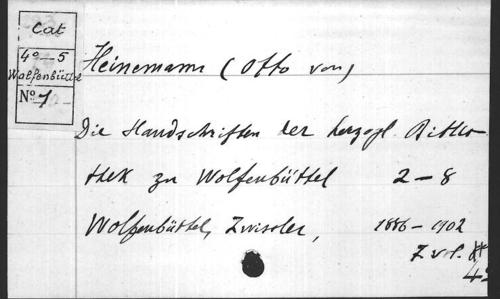 Cat
4° — 5
Wolfenbüttel
N° 1
Heinemann (Otto von)
Die Handschriften der herzogl. Biblio-
thek zu Wolfenbüttel 2 — 8
Wolfenbüttel, Zwissler, 1886 — 1902
7 vol.
4°